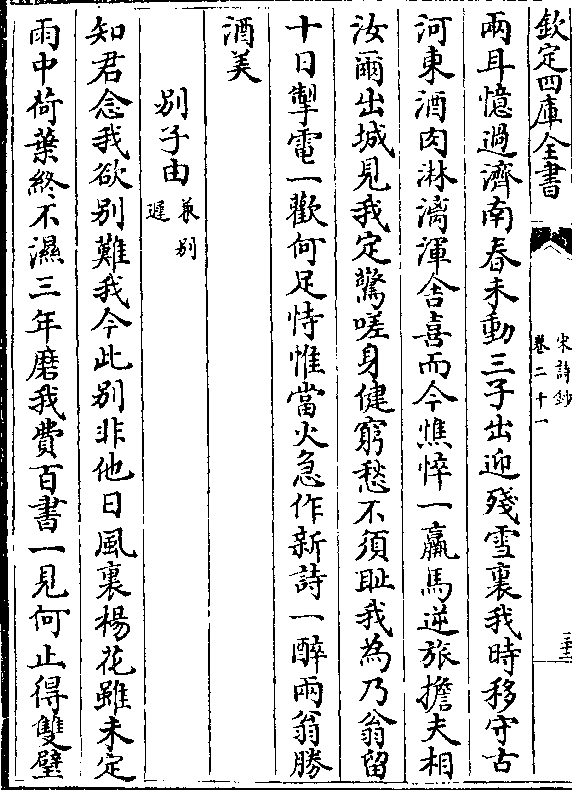 欽定四庫全書
宋詩鈔
卷二十一
兩耳憶過濟南春未動三子出迎殘雪裏我時移守古
河東酒肉淋漓渾舍喜而今憔悴一羸馬逆旅擔夫相
汝爾出城見我定驚嗟身健窮愁不須耻我為乃翁留
十日掣電一歡何足恃惟當火急作新詩一醉兩翁勝
酒美
別子由兼別
遲
知君念我欲別難我今此別非他日風裏楊花雖未定
雨中荷葉終不濕三年磨我費百書一見何止得雙璧